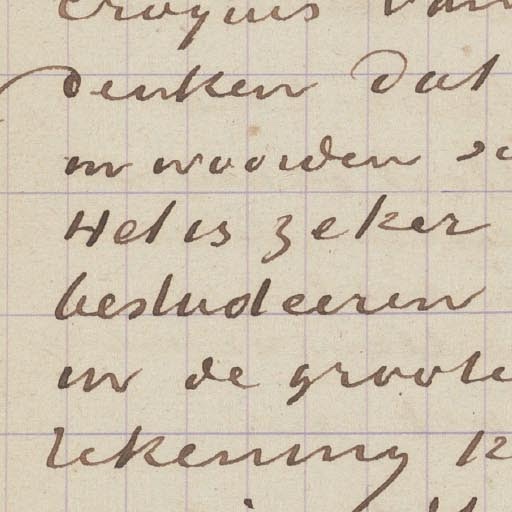 croquis van
denken dat
in woorden
Het is zeker
bestudeeren
in de groote
tekening k